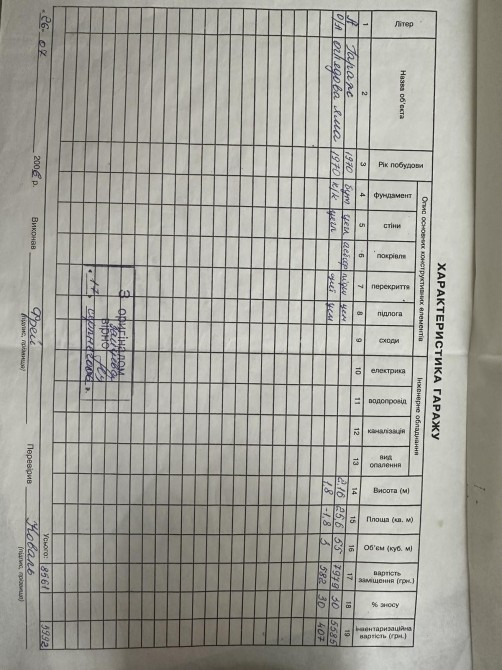 ХАРАКТЕРИСТИКА ГАРАЖУ
Літер
Назва об'єкта
Рік побудови
Опис основних конструктивних елементів
фундамент
стіни
покрівля
перекриття
підлога
сходи
Інженерне обладнання
електрика
водопровід
каналізація
вид опалення
Висота (м)
Площа (кв. м)
Об'єм (куб. м)
вартість заміщення (грн.)
% зносу
Інвентаризаційна вартість (грн.)
1 2 3 4 5 6 7 8 9 10 11 12 13 14 15 16 17 18 19
Гараж 1970 бут цегл цем 2.16 25,6 55 7979 30 5585
оглядова яма 1970 к/к цегл цем 1,8 -1,8 3 582 30 407
З оригіналом
вірно
17
Усього: 8561 5992
26. 07 2006 р. Виконав Фрей Перевірив Коваль
(підпис, прізвище) (підпис, прізвище)